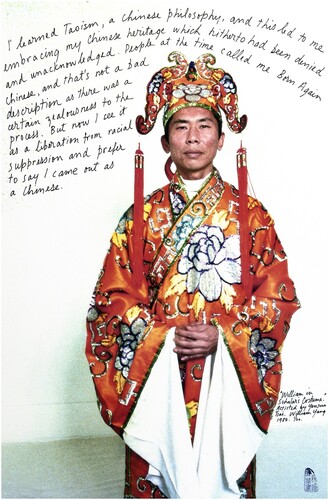 I learned Taoism, a Chinese philosophy, and this led to me
embracing my Chinese heritage which hitherto had been denied
and unacknowledged. People at the time called me Born Again
Chinese, and that's not a bad
description as there was a
certain zealousness to the
process. But now I see it
as a liberation from racial
suppression and prefer
to say I came out as
a Chinese.
"William in
Scholars Costume."
Assisted by
William Yang
1984.